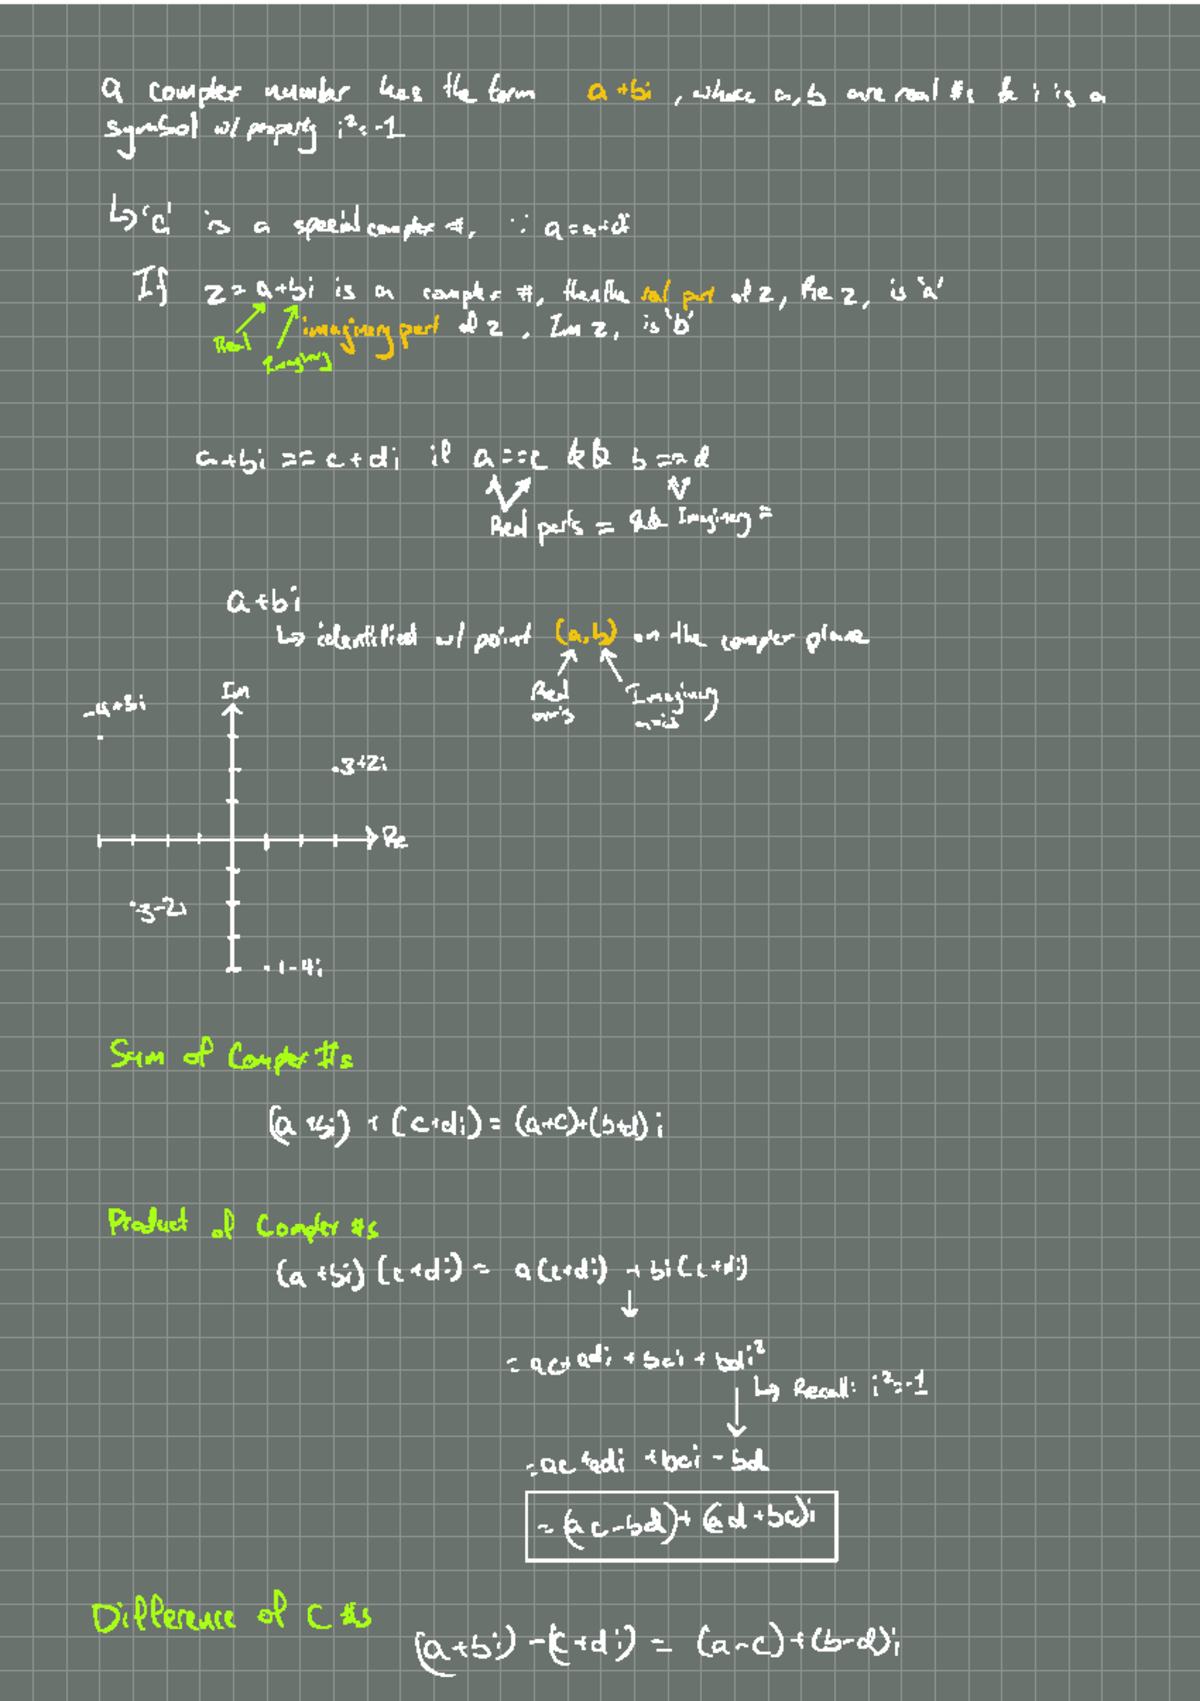 a complex number has the form a+bi, where a, b are real #s & i is a
symbol w/ property i²=-1
↳ 'a' is a special complex #, ∵ a=a+
If z=a+bi is a complex #, then the real part of z, Re z, is 'a'
imaginary part of z, Im z, is 'b'
Real
Imaginary
a+bi == c+di if a==c && b==d
Real parts = && Imaginary =
a+bi
↳ identified w/ point (a,b) on the complex plane
Real axis
Imaginary axis
Im
-4+3i
3+2i
Re
-3-2i
1-4i
Sum of Complex #s
(a+bi) + (c+di) = (a+c)+(b+d)i
Product of Complex #s
(a+bi)(c+di) = a(c+di) + bi(c+di)
↓
= ac+adi+bci+bdi²
↳ Recall: i²=-1
= ac+adi+bci-bd
= (ac-bd)+(ad+bc)i
Difference of C #s
(a+bi)-(c+di) = (a-c)+(b-d)i